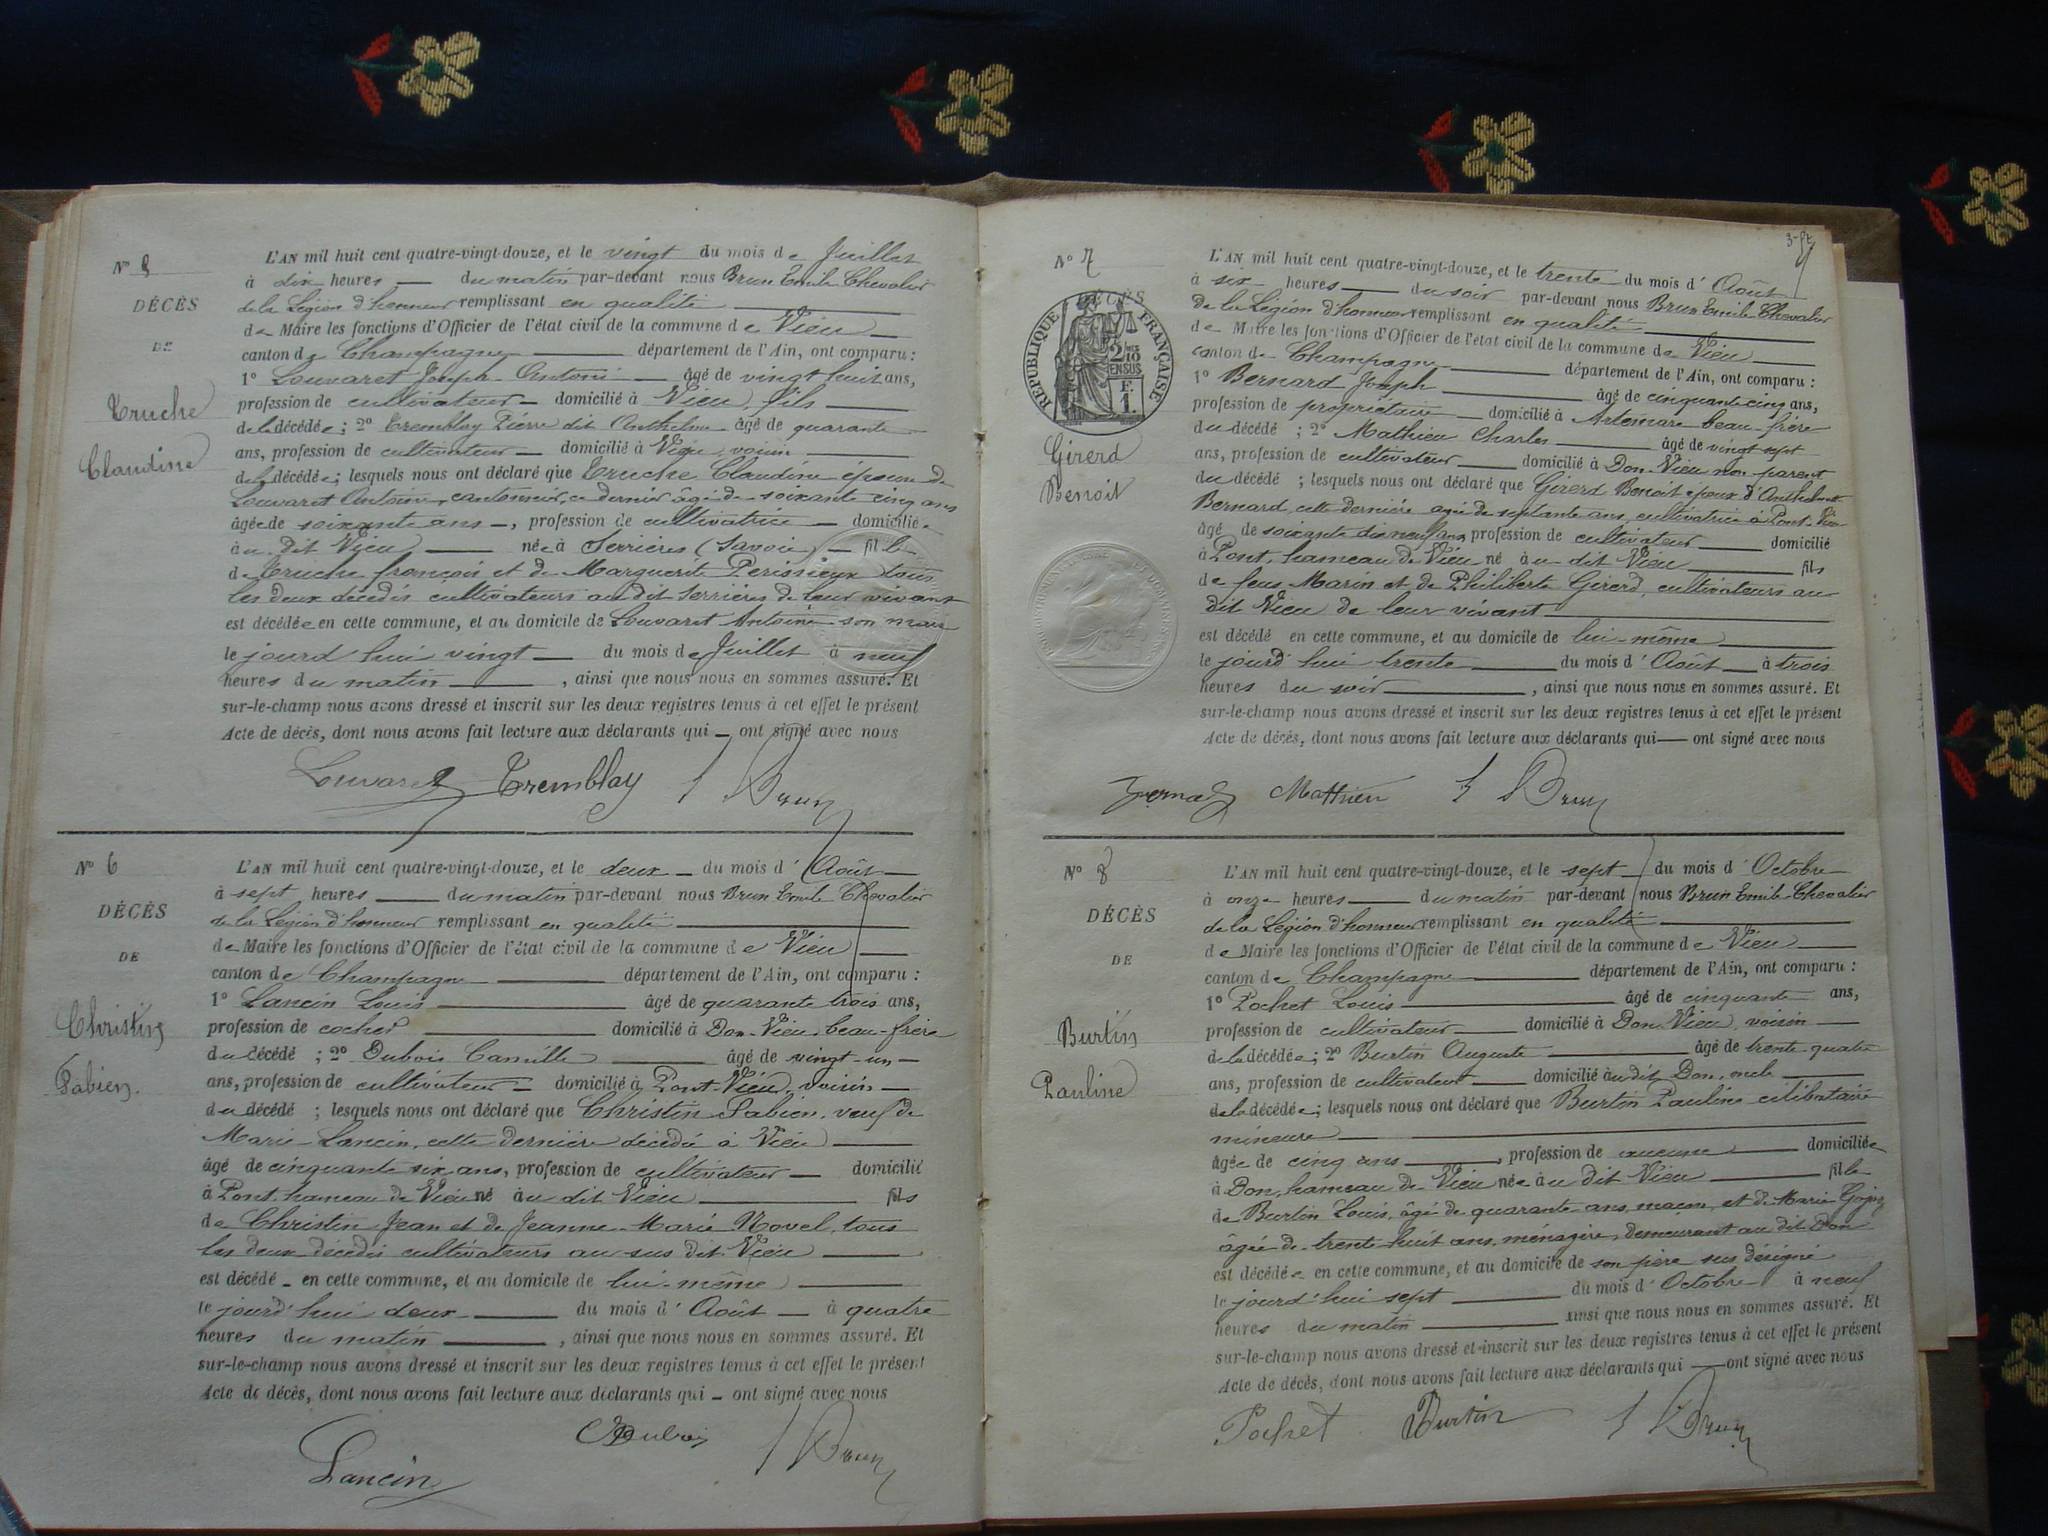 N° 5
DÉCÈS
DE
Truche
Claudine
L'AN mil huit cent quatre-vingt-douze, et le vingt du mois de Juillet
à dix heures du matin par-devant nous Brun Emile Chevalier
de la Légion d'honneur remplissant en qualité
de Maire les fonctions d'Officier de l'état civil de la commune de Vieu
canton de Champagne département de l'Ain, ont comparu :
1° Louvaret Joseph Antoine âgé de vingt huit ans,
profession de cultivateur domicilié à Vieu, fils
de la décédée ; 2° Tremblay Pierre dit Anthelme âgé de quarante
ans, profession de cultivateur domicilié à Vieu, voisin
de la décédée ; lesquels nous ont déclaré que Truche Claudine épouse de
Louvaret Antoine, cantonnier, ce dernier âgé de soixante cinq ans
âgée de soixante ans, profession de cultivatrice domiciliée
au dit Vieu née à Serrières (Savoie) fille
de Truche françois et de Marguerite Perisnieux tous
les deux décédés cultivateurs au dit Serrières de leur vivant
est décédée en cette commune, et au domicile de Louvaret Antoine son mari
le jourd'hui vingt du mois de Juillet à neuf
heures du matin, ainsi que nous nous en sommes assuré. Et
sur-le-champ nous avons dressé et inscrit sur les deux registres tenus à cet effet le présent
Acte de décès, dont nous avons fait lecture aux déclarants qui ont signé avec nous
Louvaret Tremblay Brun
N° 6
DÉCÈS
DE
Christin
Fabien.
L'AN mil huit cent quatre-vingt-douze, et le deux du mois d'Août
à sept heures du matin par-devant nous Brun Emile Chevalier
de la Légion d'honneur remplissant en qualité
de Maire les fonctions d'Officier de l'état civil de la commune de Vieu
canton de Champagne département de l'Ain, ont comparu :
1° Lancin Louis âgé de quarante trois ans,
profession de cocher domicilié à Don-Vieu, beau-frère
du décédé ; 2° Dubois Camille âgé de vingt-un
ans, profession de cultivateur domicilié à Pont-Vieu, voisin
du décédé ; lesquels nous ont déclaré que Christin Fabien, veuf de
Marie Lancin, cette dernière décédée à Vieu
âgé de cinquante six ans, profession de cultivateur domicilié
à Pont, hameau de Vieu né au dit Vieu fils
de Christin Jean et de Jeanne-Marie Novel, tous
les deux décédés cultivateurs au sus dit Vieu
est décédé en cette commune, et au domicile de lui-même
le jourd'hui deux du mois d'Août à quatre
heures du matin, ainsi que nous nous en sommes assuré. Et
sur-le-champ nous avons dressé et inscrit sur les deux registres tenus à cet effet le présent
Acte de décès, dont nous avons fait lecture aux déclarants qui ont signé avec nous
Lancin Dubois Brun
N° 7
DÉCÈS
RÉPUBLIQUE FRANÇAISE
2/10 EN SUS
F. 1.
Girerd
Benoit
L'AN mil huit cent quatre-vingt-douze, et le trente du mois d'Août
à six heures du soir par-devant nous Brun Emile Chevalier
de la Légion d'honneur remplissant en qualité
de Maire les fonctions d'Officier de l'état civil de la commune de Vieu
canton de Champagne département de l'Ain, ont comparu :
1° Bernard Joseph âgé de cinquante cinq ans,
profession de propriétaire domicilié à Artemare beau-frère
du décédé ; 2° Mathieu Charles âgé de vingt sept
ans, profession de cultivateur domicilié à Don-Vieu non parent
du décédé ; lesquels nous ont déclaré que Girerd Benoit époux d'Anthelmette
Bernard, cette dernière agée de septante ans, cultivatrice à Pont-Vieu
âgé de soixante dix neuf ans, profession de cultivateur domicilié
à Pont, hameau de Vieu né au dit Vieu fils
de feus Marin et de Philiberte Girerd, cultivateurs au
dit Vieu de leur vivant
est décédé en cette commune, et au domicile de lui-même
le jourd'hui trente du mois d'Août à trois
heures du soir, ainsi que nous nous en sommes assuré. Et
sur-le-champ nous avons dressé et inscrit sur les deux registres tenus à cet effet le présent
Acte de décès, dont nous avons fait lecture aux déclarants qui ont signé avec nous
Bernard Mathieu Brun
N° 8
DÉCÈS
DE
Burtin
Pauline
L'AN mil huit cent quatre-vingt-douze, et le sept du mois d'Octobre
à onze heures du matin par-devant nous Brun Emile Chevalier
de la Légion d'honneur remplissant en qualité
de Maire les fonctions d'Officier de l'état civil de la commune de Vieu
canton de Champagne département de l'Ain, ont comparu :
1° Pochet Louis âgé de cinquante ans,
profession de cultivateur domicilié à Don-Vieu, voisin
de la décédée ; 2° Burtin Auguste âgé de trente-quatre
ans, profession de cultivateur domicilié au dit Don, oncle
de la décédée ; lesquels nous ont déclaré que Burtin Pauline célibataire
mineure
âgée de cinq ans, profession de aucune domiciliée
à Don, hameau de Vieu née au dit Vieu fille
de Burtin Louis, âgé de quarante ans, maçon, et de Marie
âgée de trente huit ans, ménagère, demeurant au dit Don
est décédée en cette commune, et au domicile de son père sus désigné
le jourd'hui sept du mois d'Octobre à neuf
heures du matin ainsi que nous nous en sommes assuré. Et
sur-le-champ nous avons dressé et inscrit sur les deux registres tenus à cet effet le présent
Acte de décès, dont nous avons fait lecture aux déclarants qui ont signé avec nous
Pochet Burtin Brun